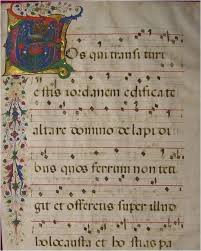 Vos qui transitur
estis iordanem edificate
altare domino de lapidi
bus quos ferrum non teti
git et offeretis super illud
holocausta et hostias pa